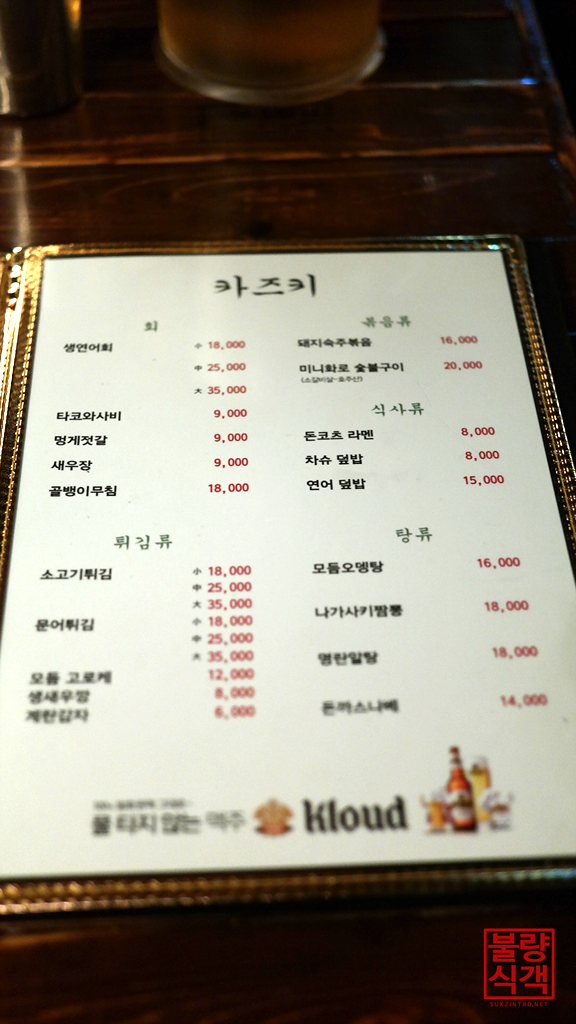 카즈키
회
생연어회 小 18,000
中 25,000
大 35,000
타코와사비 9,000
멍게젓갈 9,000
새우장 9,000
골뱅이무침 18,000
튀김류
소고기튀김 小 18,000
中 25,000
大 35,000
문어튀김 小 18,000
中 25,000
大 35,000
모듬 고로케 12,000
생새우깡 8,000
계란감자 6,000
볶음류
돼지숙주볶음 16,000
미니화로 숯불구이 20,000
(소갈비살-호주산)
식사류
돈코츠 라멘 8,000
차슈 덮밥 8,000
연어 덮밥 15,000
탕류
모듬오뎅탕 16,000
나가사키짬뽕 18,000
명란알탕 18,000
돈까스나베 14,000
물 타지 않는 맥주 Kloud
불량
식객
SUEZINTRO.NET